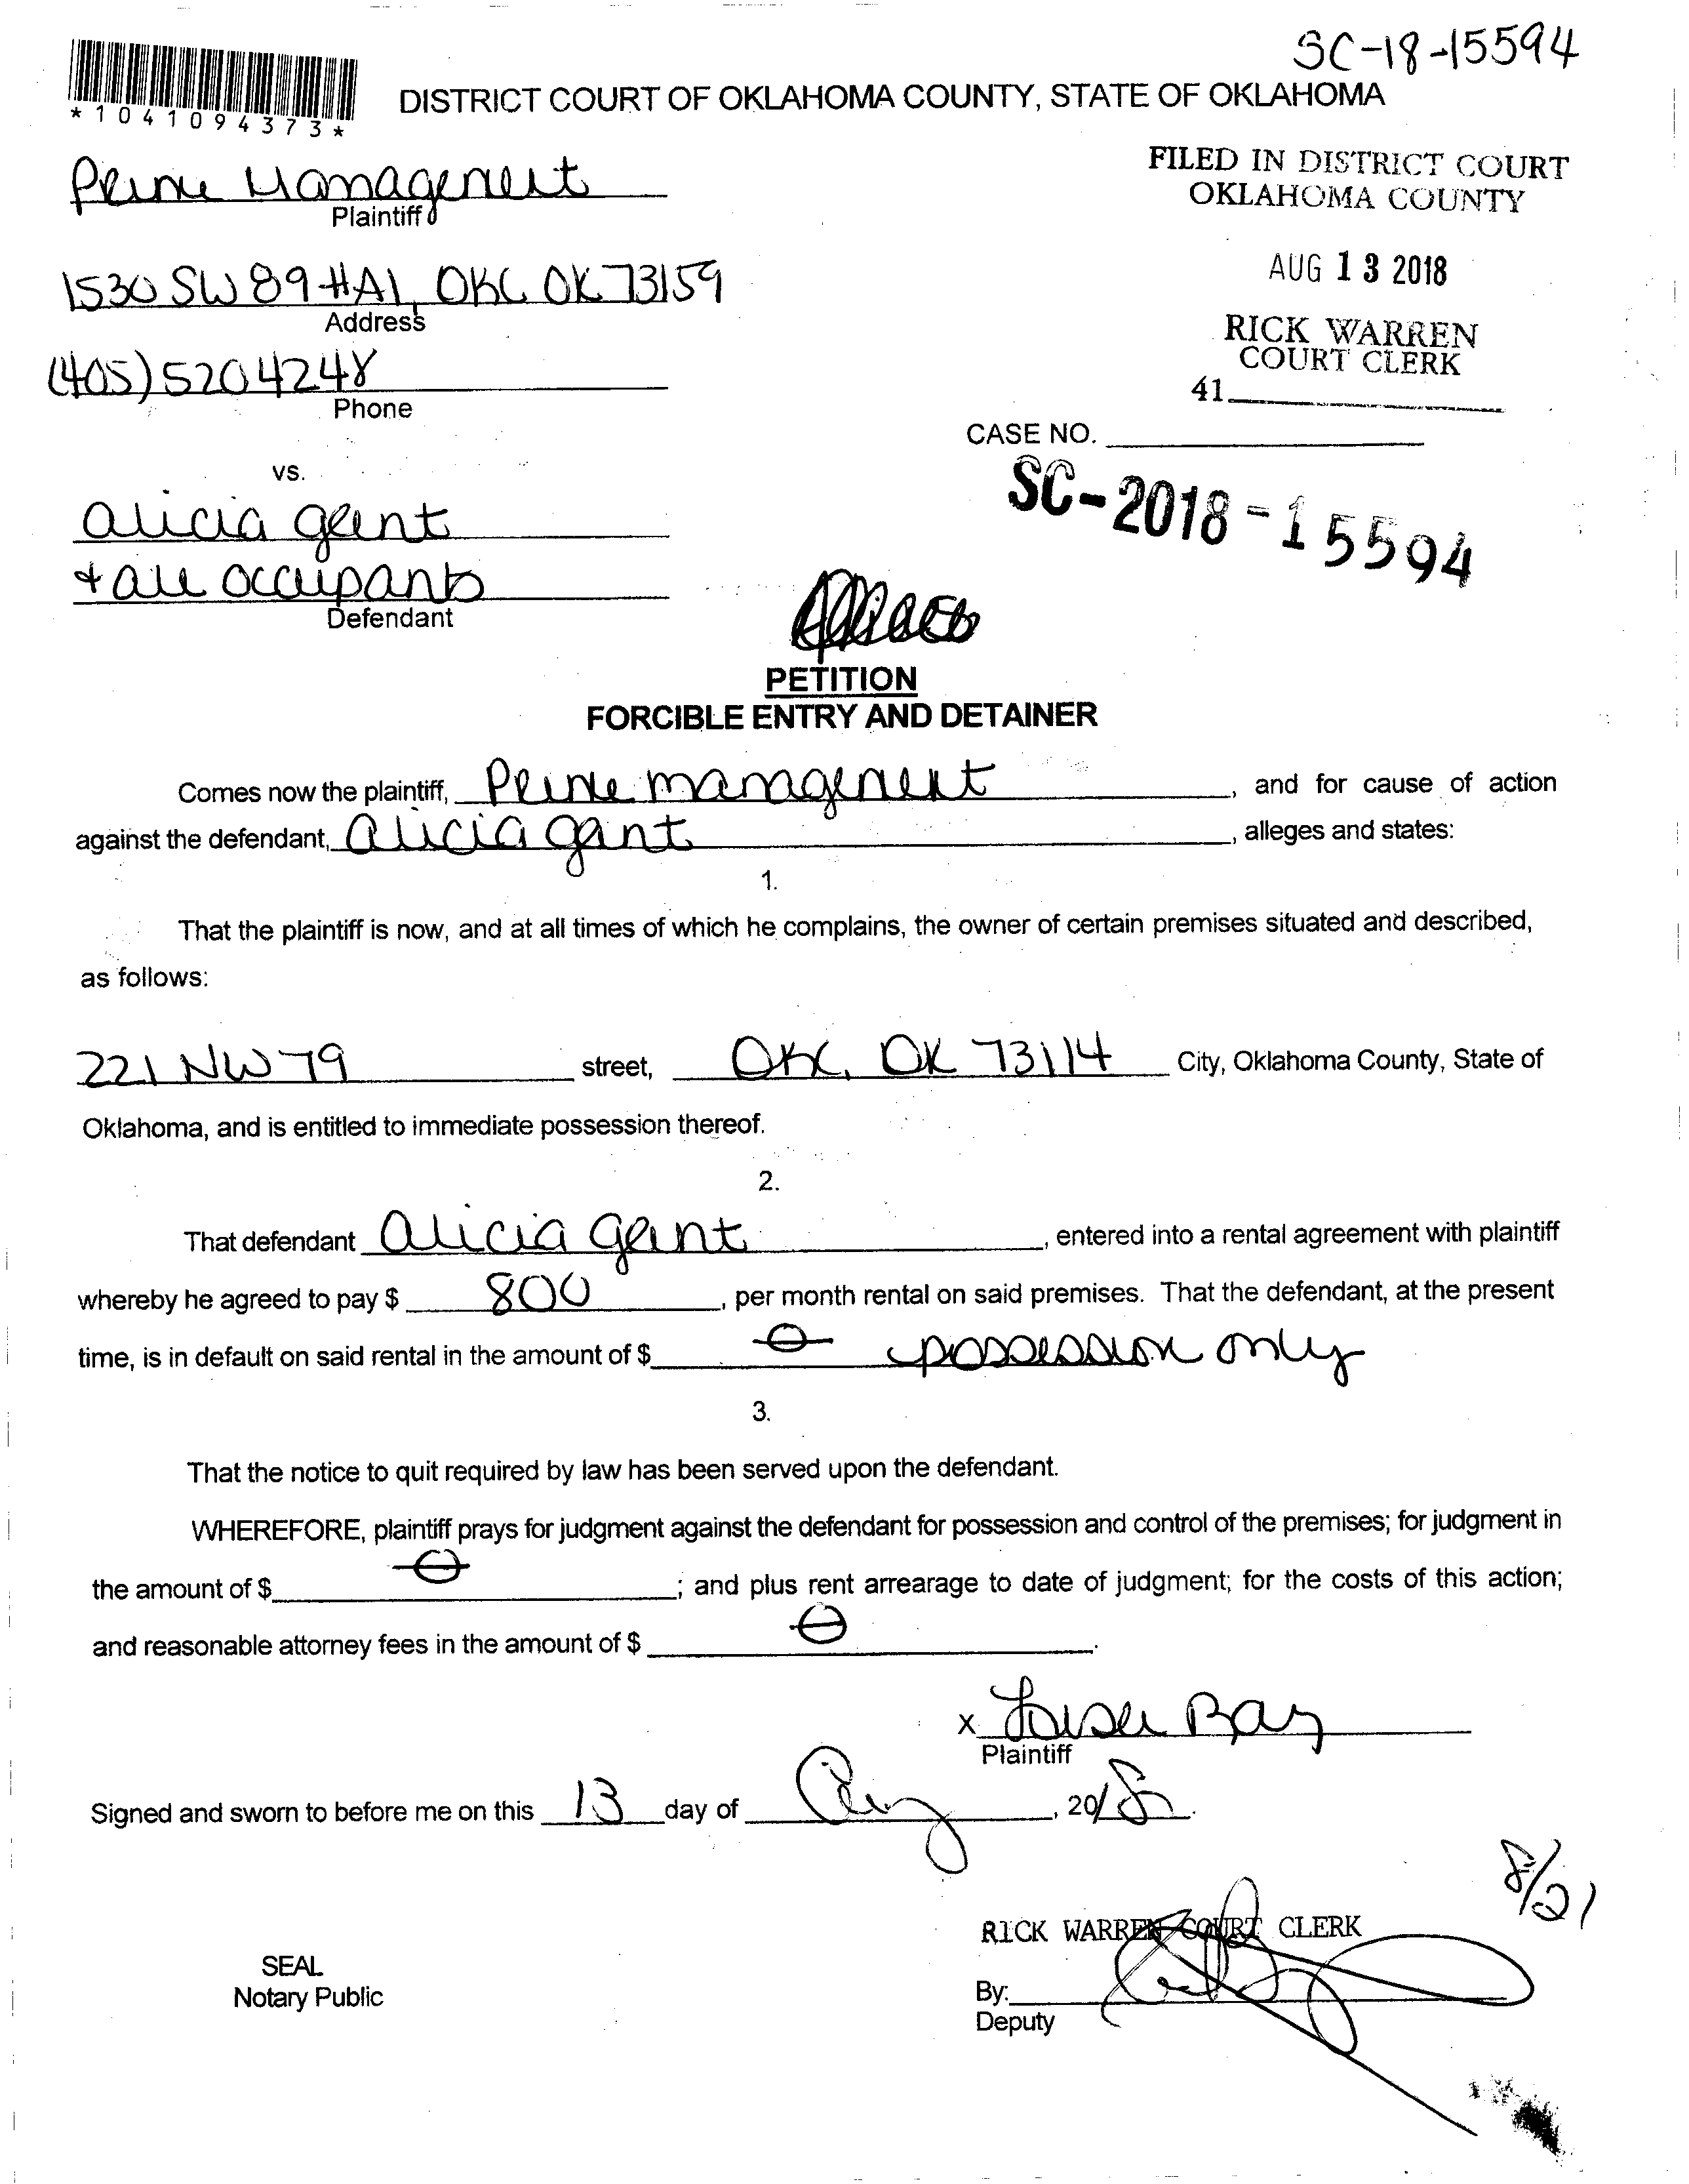 SC-18-15594
*1041094373*
DISTRICT COURT OF OKLAHOMA COUNTY, STATE OF OKLAHOMA
Prime Management
Plaintiff
FILED IN DISTRICT COURT
OKLAHOMA COUNTY
1530 SW 89 #A1, OKC OK 73159
Address
AUG 13 2018
RICK WARREN
COURT CLERK
(405) 5204248
Phone
41
CASE NO.
vs.
SC-2018-15594
alicia gant
+ all occupants
Defendant
PETITION
FORCIBLE ENTRY AND DETAINER
Comes now the plaintiff, Prime management, and for cause of action
against the defendant, alicia gant, alleges and states:
1.
That the plaintiff is now, and at all times of which he complains, the owner of certain premises situated and described,
as follows:
221 NW 79 street, OKC, OK 73114 City, Oklahoma County, State of
Oklahoma, and is entitled to immediate possession thereof.
2.
That defendant alicia gant, entered into a rental agreement with plaintiff
whereby he agreed to pay $ 800, per month rental on said premises. That the defendant, at the present
time, is in default on said rental in the amount of $ 0 possession only
3.
That the notice to quit required by law has been served upon the defendant.
WHEREFORE, plaintiff prays for judgment against the defendant for possession and control of the premises; for judgment in
the amount of $ 0; and plus rent arrearage to date of judgment; for the costs of this action;
and reasonable attorney fees in the amount of $ 0.
x Bay
Plaintiff
Signed and sworn to before me on this 13 day of Aug, 2018.
8/21
RICK WARREN COURT CLERK
SEAL
Notary Public
By:
Deputy